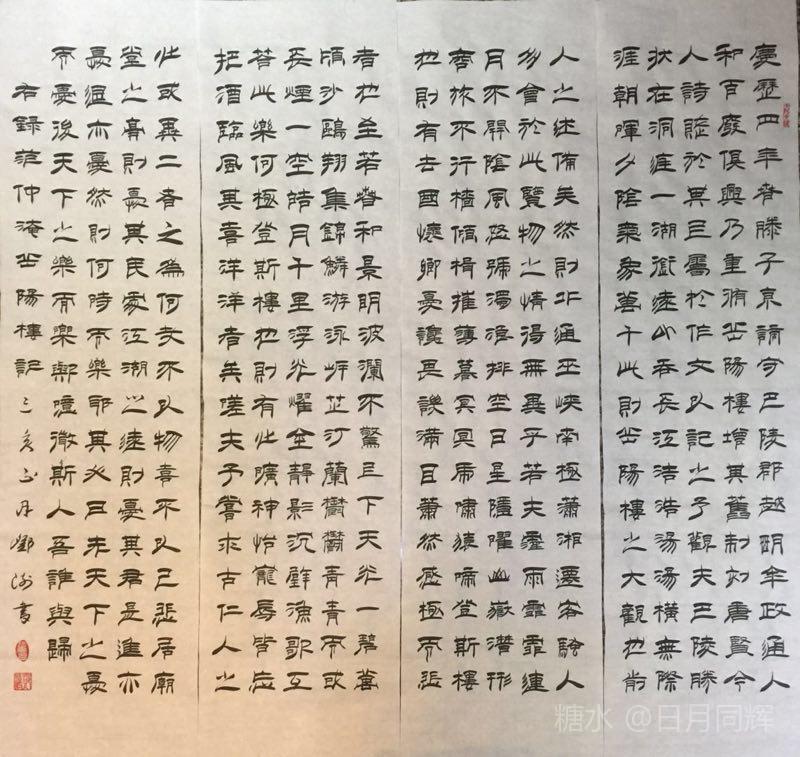 慶歷四年春滕子京謫守巴陵郡越明年政通人
和百廢俱興乃重脩岳陽樓增其舊制刻唐賢今
人詩賦於其上屬於作文以記之予觀夫巴陵勝
狀在洞庭一湖銜遠山吞長江浩浩湯湯橫無際
涯朝暉夕陰氣象萬千此則岳陽樓之大觀也前
人之述備矣然則北通巫峽南極瀟湘遷客騷人
多會於此覽物之情得無異乎若夫霪雨霏霏連
月不開陰風怒號濁浪排空日星隱曜山嶽潛形
商旅不行檣傾楫摧薄暮冥冥虎嘯猿啼登斯樓
也則有去國懷鄉憂讒畏譏滿目蕭然感極而悲
者也至若春和景明波瀾不驚上下天光一碧萬
頃沙鷗翔集錦鱗游泳岸芷汀蘭鬱鬱青青而或
長煙一空皓月千里浮光耀金靜影沉璧漁歌互
答此樂何極登斯樓也則有心曠神怡寵辱皆忘
把酒臨風其喜洋洋者矣嗟夫予嘗求古仁人之
心或異二者之為何哉不以物喜不以己悲居廟
堂之高則憂其民處江湖之遠則憂其君是進亦
憂退亦憂然則何時而樂耶其必曰先天下之憂
而憂後天下之樂而樂歟噫微斯人吾誰與歸
右錄范仲淹岳陽樓記己亥正月鄧書
糖水 @日月同辉